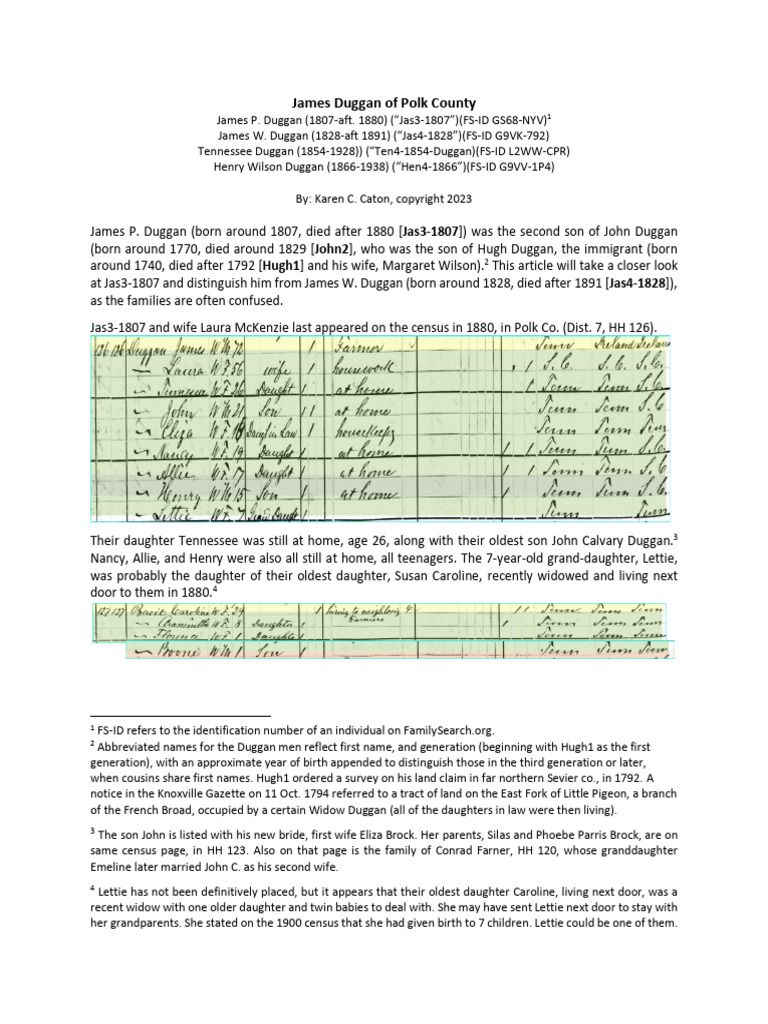 James Duggan of Polk County
James P. Duggan (1807-aft. 1880) (“Jas3-1807”)(FS-ID GS68-NYV)1
James W. Duggan (1828-aft 1891) (“Jas4-1828”)(FS-ID G9VK-792)
Tennessee Duggan (1854-1928)) (“Ten4-1854-Duggan)(FS-ID L2WW-CPR)
Henry Wilson Duggan (1866-1938) (“Hen4-1866”)(FS-ID G9VV-1P4)
By: Karen C. Caton, copyright 2023
James P. Duggan (born around 1807, died after 1880 [Jas3-1807]) was the second son of John Duggan
(born around 1770, died around 1829 [John2], who was the son of Hugh Duggan, the immigrant (born
around 1740, died after 1792 [Hugh1] and his wife, Margaret Wilson).2 This article will take a closer look
at Jas3-1807 and distinguish him from James W. Duggan (born around 1828, died after 1891 [Jas4-1828]),
as the families are often confused.
Jas3-1807 and wife Laura McKenzie last appeared on the census in 1880, in Polk Co. (Dist. 7, HH 126).
126 126 Duggan James W M 72 1 Farmer Tenn Ireland Ireland
— Laura W F 56 wife 1 housework 1 S.C. S.C. S.C.
— Tennessee W F 26 Daught 1 at home 1 Tenn Tenn S.C.
— John W M 21 Son 1 1 at home Tenn Tenn S.C.
— Eliza W F 18 Daught in Law 1 housekeep Tenn Tenn Tenn
— Nancy W F 19 Daught 1 at home 1 1 Tenn Tenn S.C.
— Allie W F 17 Daught 1 at home 1 1 Tenn Tenn S.C.
— Henry W M 15 Son 1 at home 1 Tenn Tenn S.C.
— Lettie W F 7 Grand Daught Tenn Tenn
Their daughter Tennessee was still at home, age 26, along with their oldest son John Calvary Duggan.3
Nancy, Allie, and Henry were also all still at home, all teenagers. The 7-year-old grand-daughter, Lettie,
was probably the daughter of their oldest daughter, Susan Caroline, recently widowed and living next
door to them in 1880.4
127 127 Caroline W F 29 1 1 1 Tenn Tenn Tenn
— W F 8 Daughter 1 1 Tenn Tenn Tenn
— Florence W F 1 Daughter 1 Tenn Tenn Tenn
— Boone W M 1 Son 1 Tenn Tenn Tenn
1 FS-ID refers to the identification number of an individual on FamilySearch.org.
2 Abbreviated names for the Duggan men reflect first name, and generation (beginning with Hugh1 as the first
generation), with an approximate year of birth appended to distinguish those in the third generation or later,
when cousins share first names. Hugh1 ordered a survey on his land claim in far northern Sevier co., in 1792. A
notice in the Knoxville Gazette on 11 Oct. 1794 referred to a tract of land on the East Fork of Little Pigeon, a branch
of the French Broad, occupied by a certain Widow Duggan (all of the daughters in law were then living).
3 The son John is listed with his new bride, first wife Eliza Brock. Her parents, Silas and Phoebe Parris Brock, are on
same census page, in HH 123. Also on that page is the family of Conrad Farner, HH 120, whose granddaughter
Emeline later married John C. as his second wife.
4 Lettie has not been definitively placed, but it appears that their oldest daughter Caroline, living next door, was a
recent widow with one older daughter and twin babies to deal with. She may have sent Lettie next door to stay with
her grandparents. She stated on the 1900 census that she had given birth to 7 children. Lettie could be one of them.